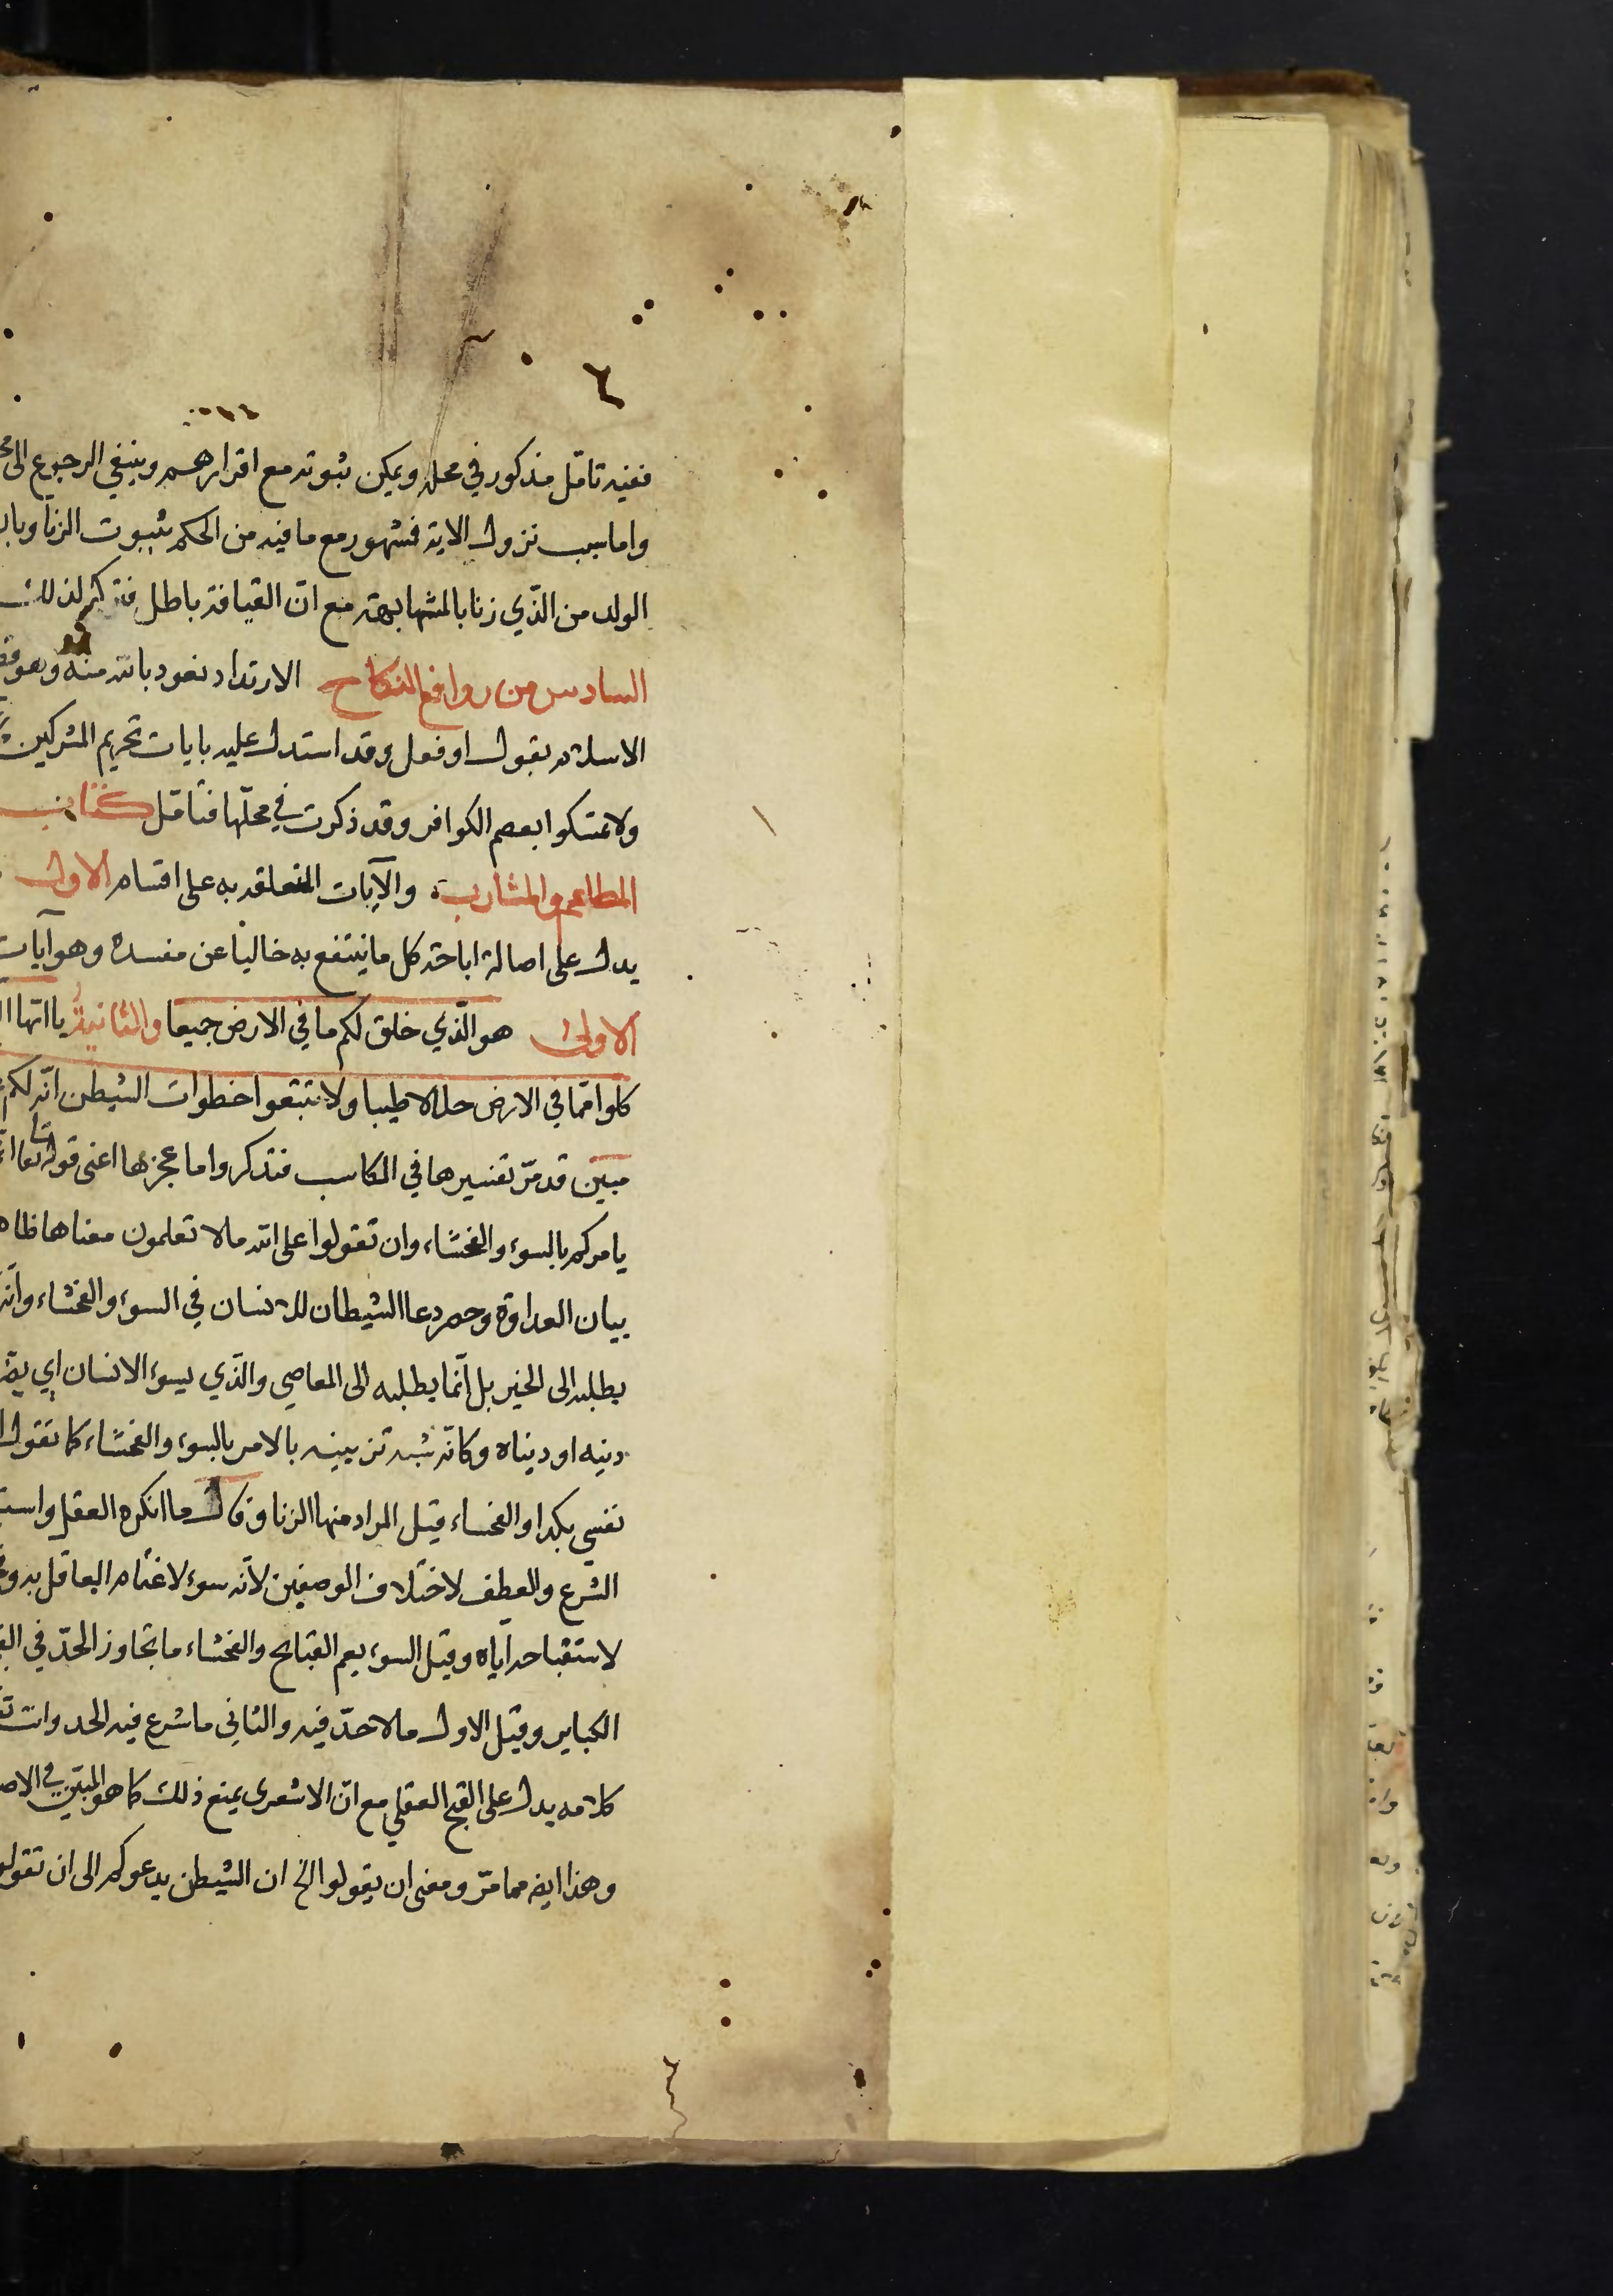 ففيه تامّل مذكور في محله ويمكن ثبوته مع اقرارهم وينبغي الرجوع الى
واما سبب نزول الاية فمشهور مع ما فيه من الحكم بثبوت الزنا
الولد من الّذي زنا بالمشابهة مع انّ القيافة باطل فتذكر لذلك
السادس من روافع النكاح الارتداد نعوذ بالله منه وهو
الاسلام بقول او فعل وقد استدل عليه بايات تحريم المشركين
ولا تمسكوا بعصم الكوافر وقد ذكرت في محلّها فتامّل كتاب
المطاعم والمشارب والآيات المتعلقه به على اقسام الاول
يدل على اصالة اباحة كل ما ينتفع به خاليا عن مفسده وهو آيات
الاولى هو الّذي خلق لكم ما في الارض جميعا والثانية يا ايّها
كلوا ممّا في الارض حلالا طيبا ولا تتبعوا خطوات الشيطن انّه لكم
مبين قد مرّ تفسيرها في المكاسب فتذكر واما عجزها اعنى قوله تعا
يامركم بالسوء والفحشاء وان تقولوا على الله ما لا تعلمون معناها
بيان العداوة وحصر دعا الشيطان للانسان في السوء والفحشاء وانّه
يطلبه الى الخير بل انّما يطلبه الى المعاصي والّذي يسوء الانسان اي
دينه او ديناه وكانّه شبه تزيينه بالامر بالسوء والفحشاء كما تقول
نفسي بكذا والفحشاء قيل المراد منها الزنا وقال ما انكره العقل
الشرع والعطف لاختلاف الوصفين لانّه سوء لاغتمام العاقل به
لاستقباحه ايّاه وقيل السوء يعم القبايح والفحشاء ما تجاوز الحدّ في
الكباير وقيل الاول ما لا حدّ فيه والثاني ما شرع فيه الحد وانت
كلامه يدل على القبح العقلي مع انّ الاشعرى يمنع ذلك كما هو المبيّن في
وهذا ايضه مما مرّ ومعنى ان يقولوا الخ ان الشيطن يدعوكم الى ان